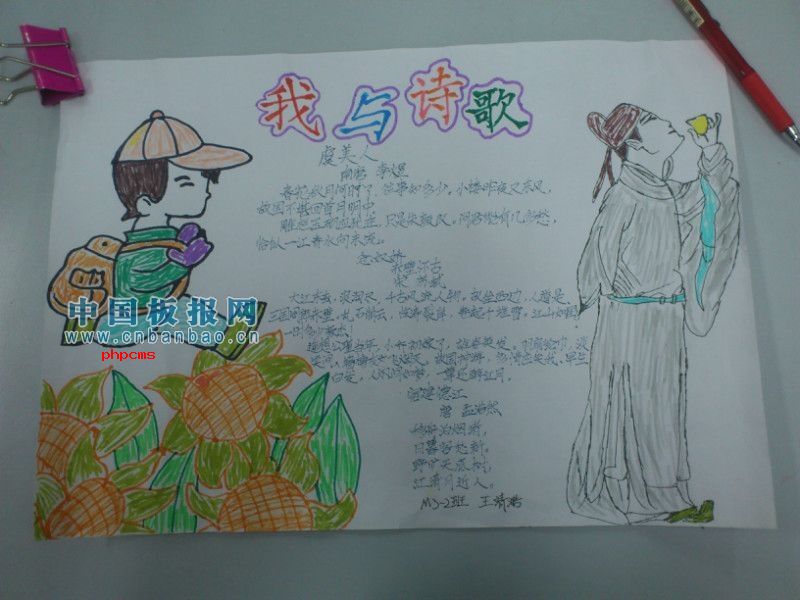 我与诗歌
虞美人
南唐 李煜
春花秋月何时了,往事知多少。小楼昨夜又东风,
故国不堪回首月明中
只是朱颜改,问君能有几多愁,
恰似一江春水向东流。
念奴娇
赤壁怀古
宋 苏轼
大江东去,浪淘尽,千古风流人物,故垒西边,人道是,
三国周郎赤壁,乱石
江山如画
一时多少豪杰!
遥想公瑾当年,小乔初嫁了,雄姿英发。羽扇纶巾,谈
笑间,
故国神游,多情应笑我,早生
人间如梦,一尊还酹江月。
宿建德江
唐 孟浩然
移舟泊烟渚,
日暮客愁新。
野旷天低树,
江清月近人。
M3-2班 王
中国板报网
www.cnbanbao.cn
phpcms